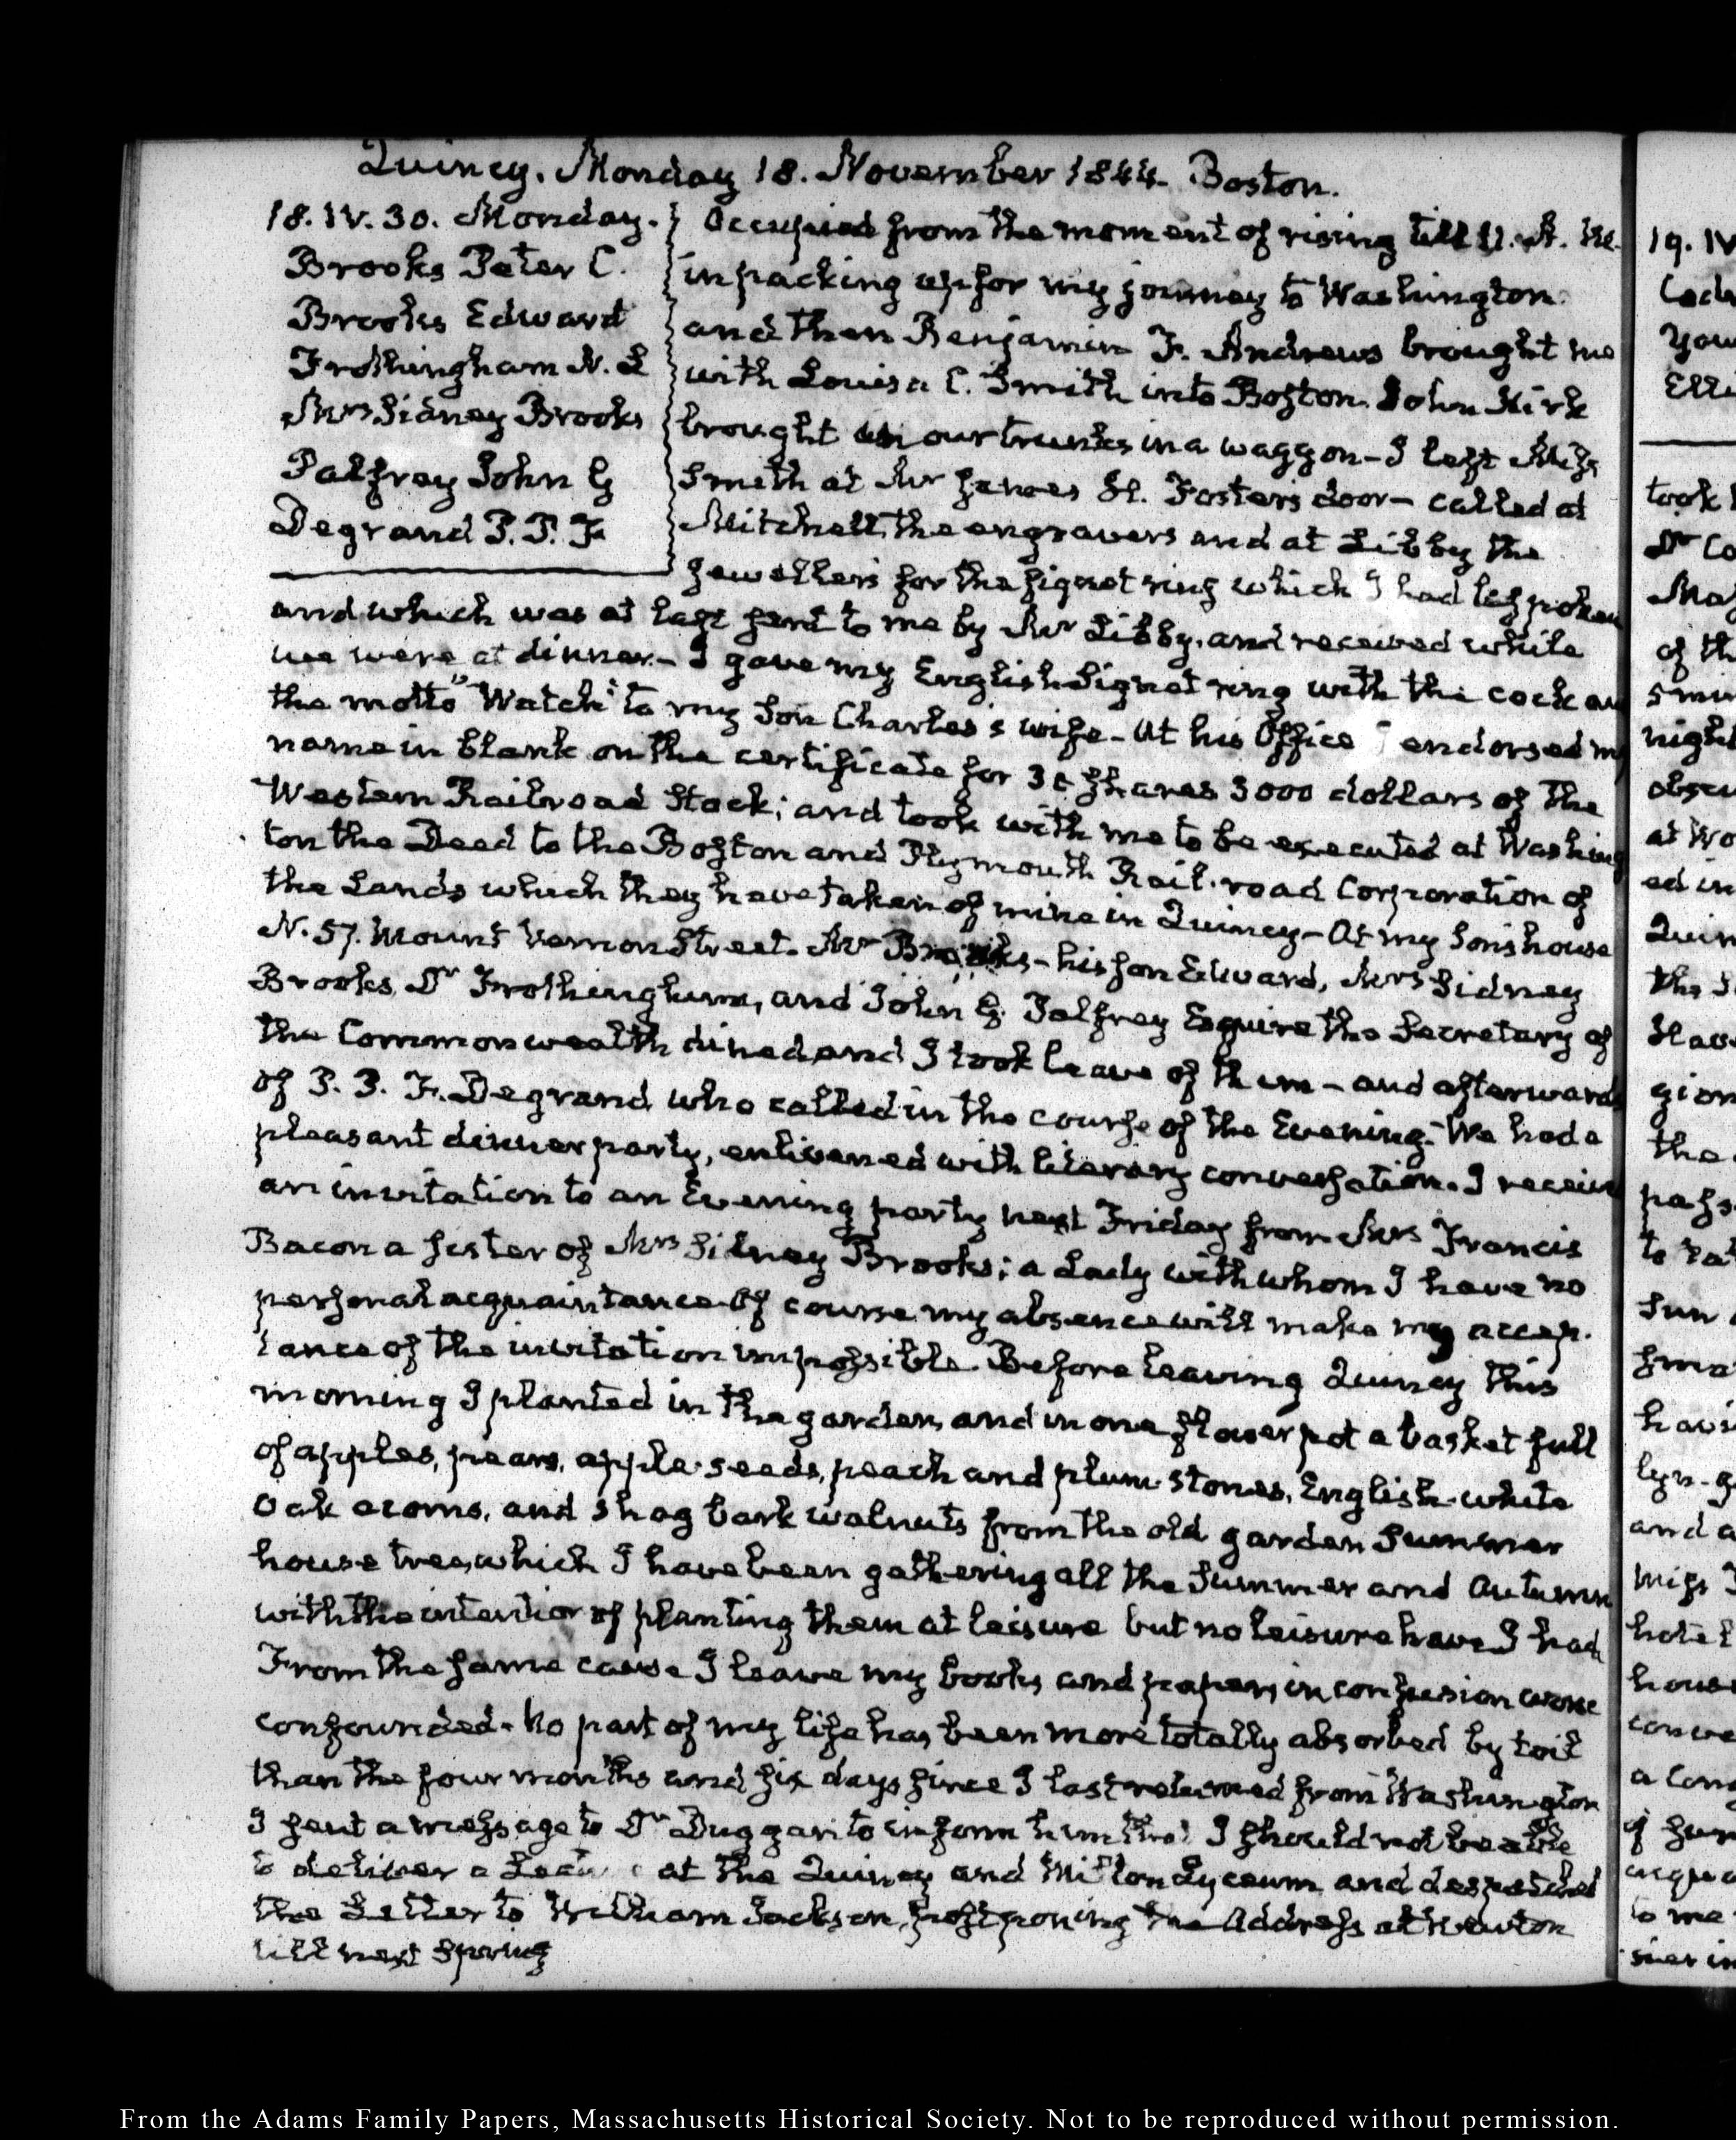 Quincy. Monday 18. November 1844. Boston.
18. IV. 30. Monday.
Brooks Peter C.
Brooks Edward
Frothingham N. L
Mrs Sidney Brooks
Palfrey John G
Degrand P. P. F
Occupied from the moment of rising till 11. A. M.
in packing up for my journey to Washington
and then Benjamin F. Andrews brought me
with Louisa C. Smith into Boston. John Kirk
brought in our trunks in a waggon – I left Miss
Smith at Mr James H. Foster's door – called at
Mitchell, the engravers and at Libby the
Jeweller's for the signet ring which I had bespoken
and which was at last sent to me by Mr Libby, and received while
we were at dinner. – I gave my English Signet ring with the cock and
the motto "Watch" to my Son Charles's wife – At his Office I endorsed my
name in blank on the certificate for 30 shares 3000 dollars of the
Western Railroad Stock; and took with me to be executed at Washing
ton the Deed to the Boston and Plymouth Rail-road Corporation of
the Lands which they have taken of mine in Quincy – At my Sons house
N. 57. Mount Vernon Street. Mr Brooks – his son Edward, Mrs Sidney
Brooks, Dr Frothingham, and John G. Palfrey Esquire the Secretary of
the Commonwealth dined, and I took leave of them – and afterwards
of P. P. F. Degrand who called in the course of the Evening. We had a
pleasant dinner party, enlivened with literary conversation. I receive
an invitation to an Evening party next Friday from Mrs Francis
Bacon a sister of Mrs Sidney Brooks; a Lady with whom I have no
personal acquaintance. Of course my absence will make my accep-
tance of the invitation impossible. Before leaving Quincy this
morning I planted in the garden, and in one flower pot a basket full
of apples, pears, apple-seeds, peach and plum-stones, English-white
Oak acorns, and shag bark walnuts from the old garden Summer
house tree, which I have been gathering all the Summer and Autumn
with the intention of planting them at leisure but no leisure have I had
From the same cause I leave my books and papers in confusion worse
confounded. No part of my life has been more totally absorbed by toil
than the four months and six days since I last returned from Washington
I sent a message to Dr Duggan to inform him that I should not be able
to deliver a at the Quincy and Milton Lyceum and despatched
the Letter to William Jackson, postponing the Address at Newton
till next Spring
19. IV
took
of th
night
at Wo
ed in
the
to
and a
a Con
to me
From the Adams Family Papers, Massachusetts Historical Society. Not to be reproduced without permission.